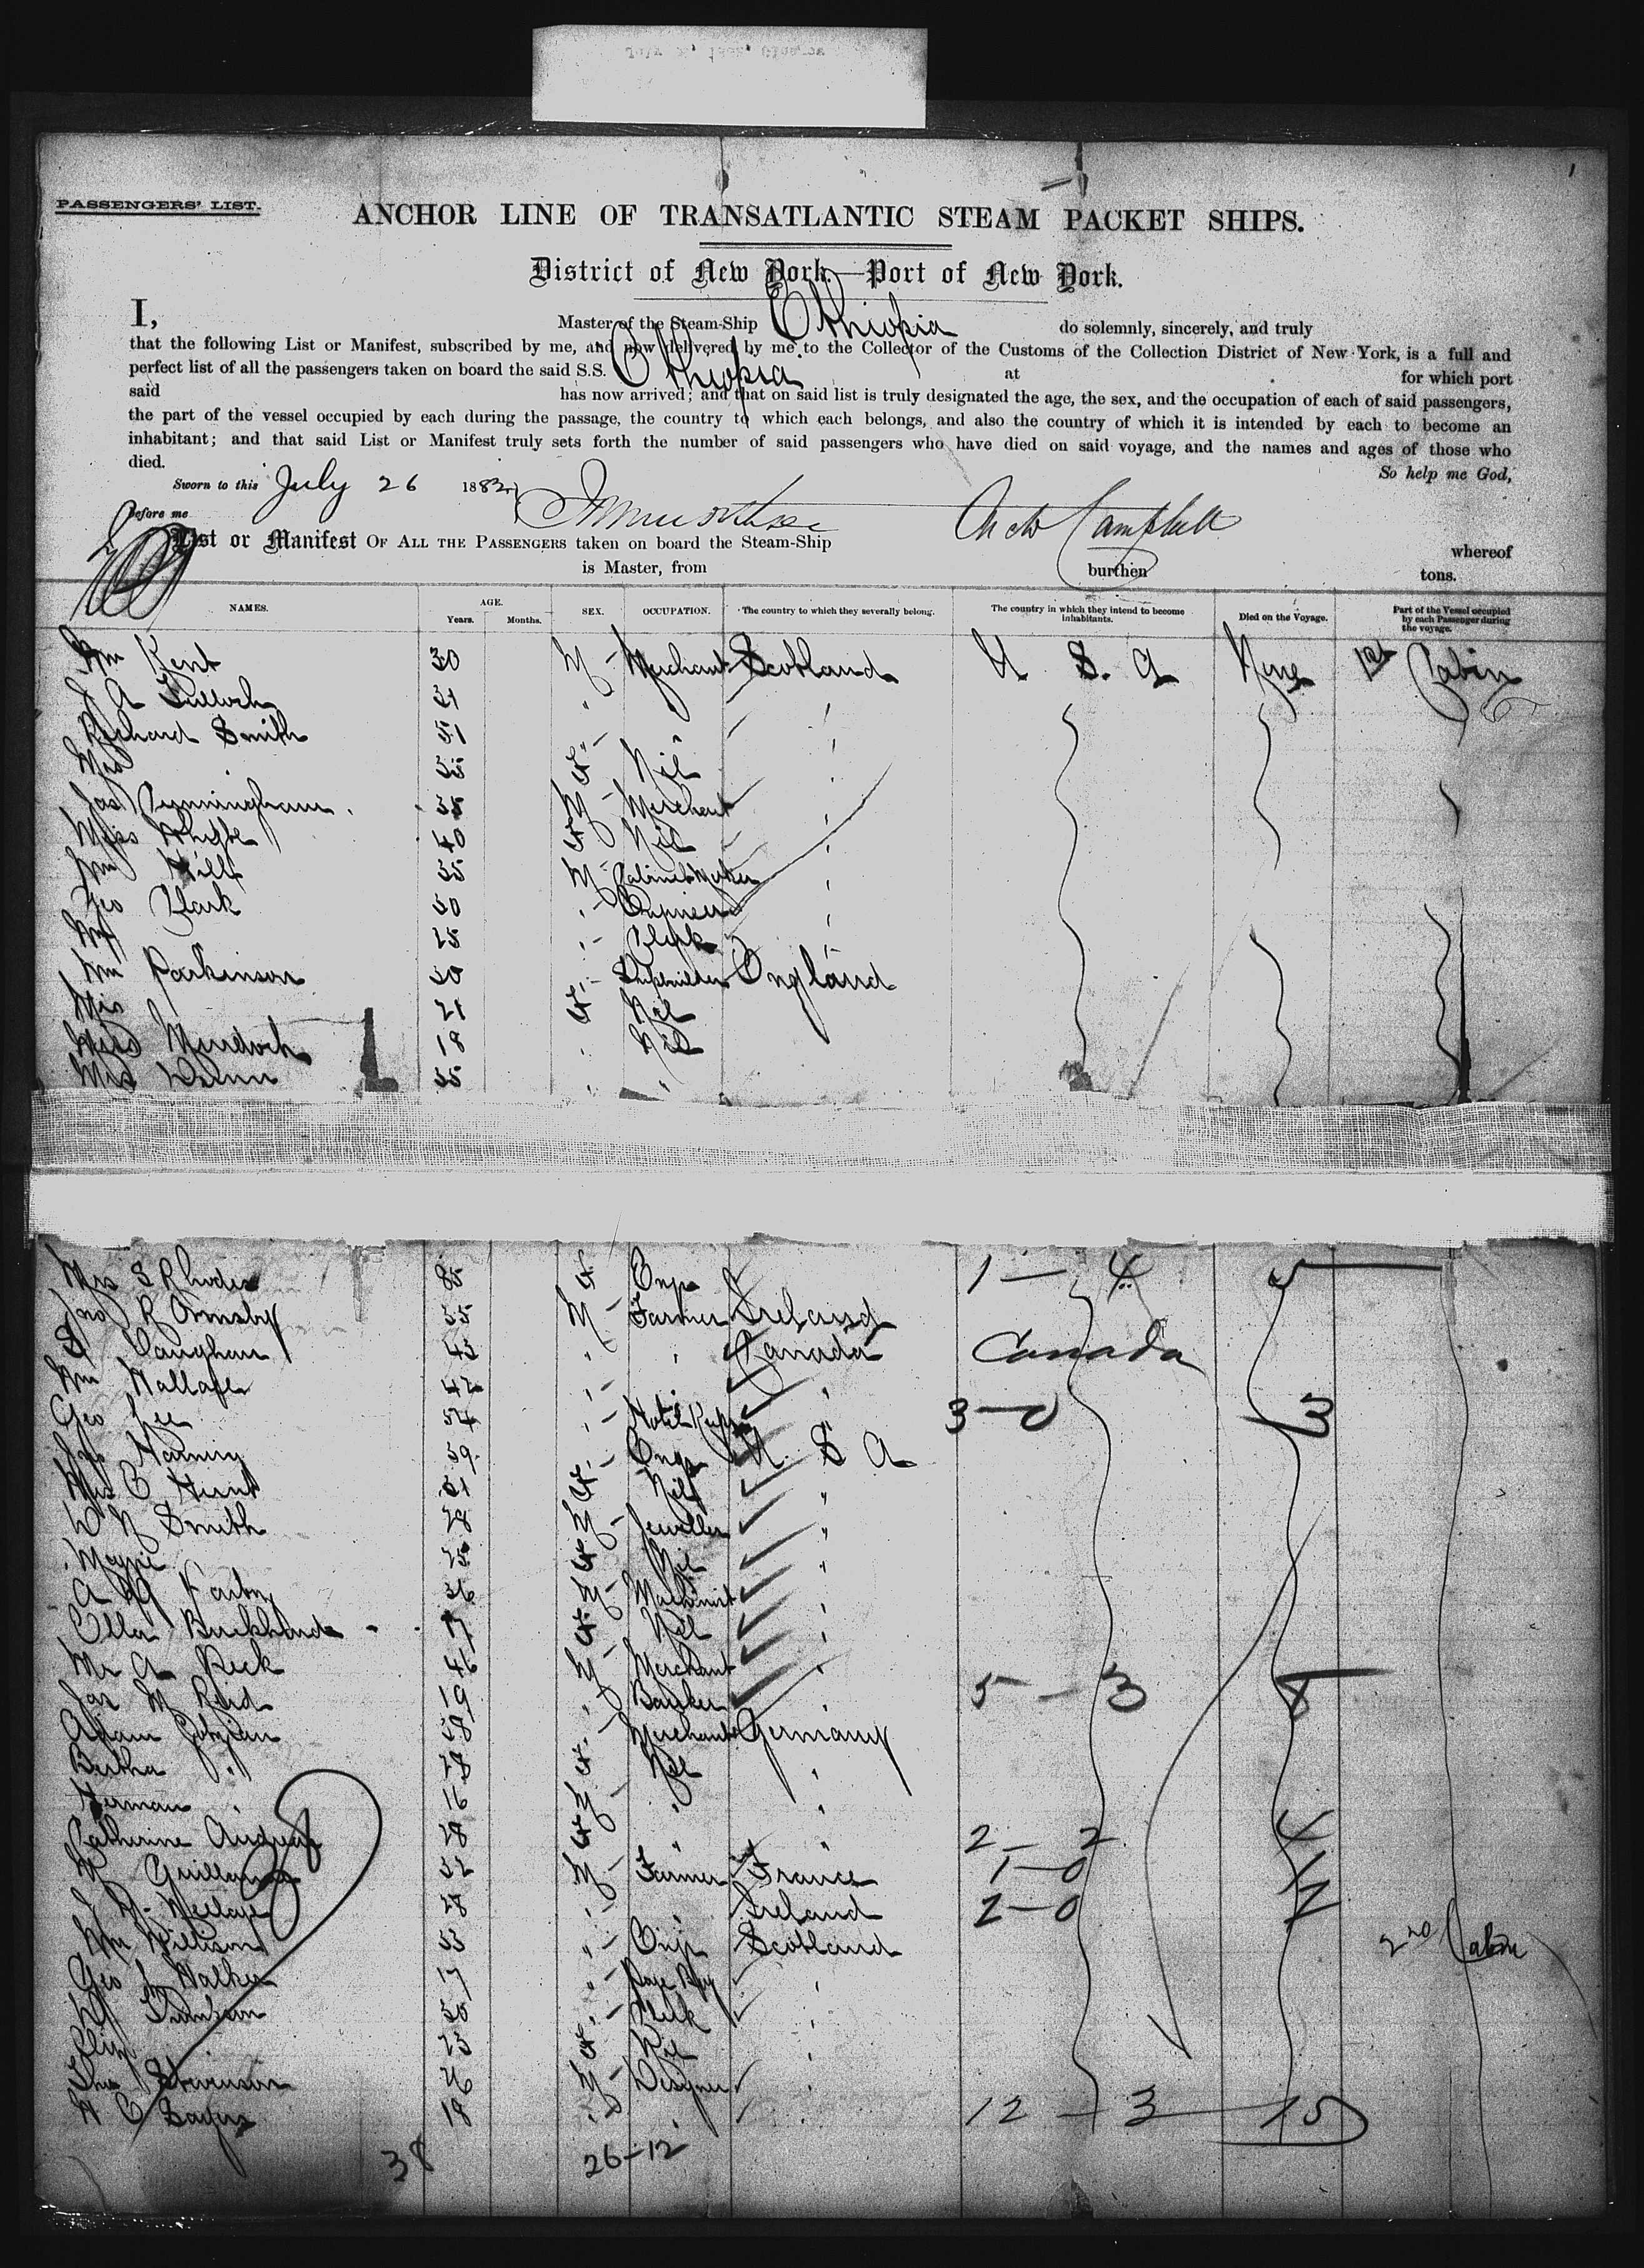 PASSENGERS' LIST.
ANCHOR LINE OF TRANSATLANTIC STEAM PACKET SHIPS.
District of New York.—Port of New York.
I, Master of the Steam-Ship Ethiopia do solemnly, sincerely, and truly
that the following List or Manifest, subscribed by me, and now delivered by me to the Collector of the Customs of the Collection District of New York, is a full and
perfect list of all the passengers taken on board the said S.S. Ethiopia at for which port
said has now arrived; and that on said list is truly designated the age, the sex, and the occupation of each of said passengers,
the part of the vessel occupied by each during the passage, the country to which each belongs, and also the country of which it is intended by each to become an
inhabitant; and that said List or Manifest truly sets forth the number of said passengers who have died on said voyage, and the names and ages of those who
died. So help me God,
Sworn to this July 26 1882
Before me Archd Campbell
List or Manifest OF ALL THE PASSENGERS taken on board the Steam-Ship whereof
is Master, from burthen tons.
NAMES. AGE. Years. Months. SEX. OCCUPATION. The country to which they severally belong. The country in which they intend to become inhabitants. Died on the Voyage. Part of the Vessel occupied by each Passenger during the voyage.
Wm Kent 30 M Merchant Scotland U. S. A None 1st Cabin
J A 31 " "
Richard Smith 51 " "
Mrs 55 F Nil
Jas Cunningham 38 M Merchant
Miss 40 F Nil
Wm Hill 35 M Cabinet Maker
Geo Clark 30 " Engineer
Wm 25 " Clerk
Wm Parkinson 30 " Shipbuilder England
Mrs 21 F Nil
Miss Murdoch 18 " Nil
Mrs 35 " "
Mrs S Rhodes 35 F 1 — 4 5
Jno R Ormsby 35 M Farmer Ireland
S Vaughan 43 " " Canada Canada
Wm Wallace 42 " " "
Geo Lee 54 " Hotel Keeper " 3 — 0 3
39 " U. S A
Mrs C Hunt 31 F Nil "
W N Smith 28 M Jeweller "
25 F Nil "
A 36 M Machinist "
Ella 17 F Nil "
Mr A Peck 46 M Merchant "
Jas M Reid 19 " Banker " 5 — 3 8
Adam 38 " Merchant Germany
Bertha " 28 F Nil "
Herman " 16 M " "
Catherine 28 F " " 2 — 2 4
M 32 M Farmer France 1 — 0 1
J 28 " " Ireland 2 — 0 2
Wm 33 " Scotland 2nd Cabin
Geo L Walker 17 " Page Boy "
30 " Clerk "
23 F Nil "
Thos Stevenson 26 M Designer "
18 " " " 12 — 3 15
38 26 — 12